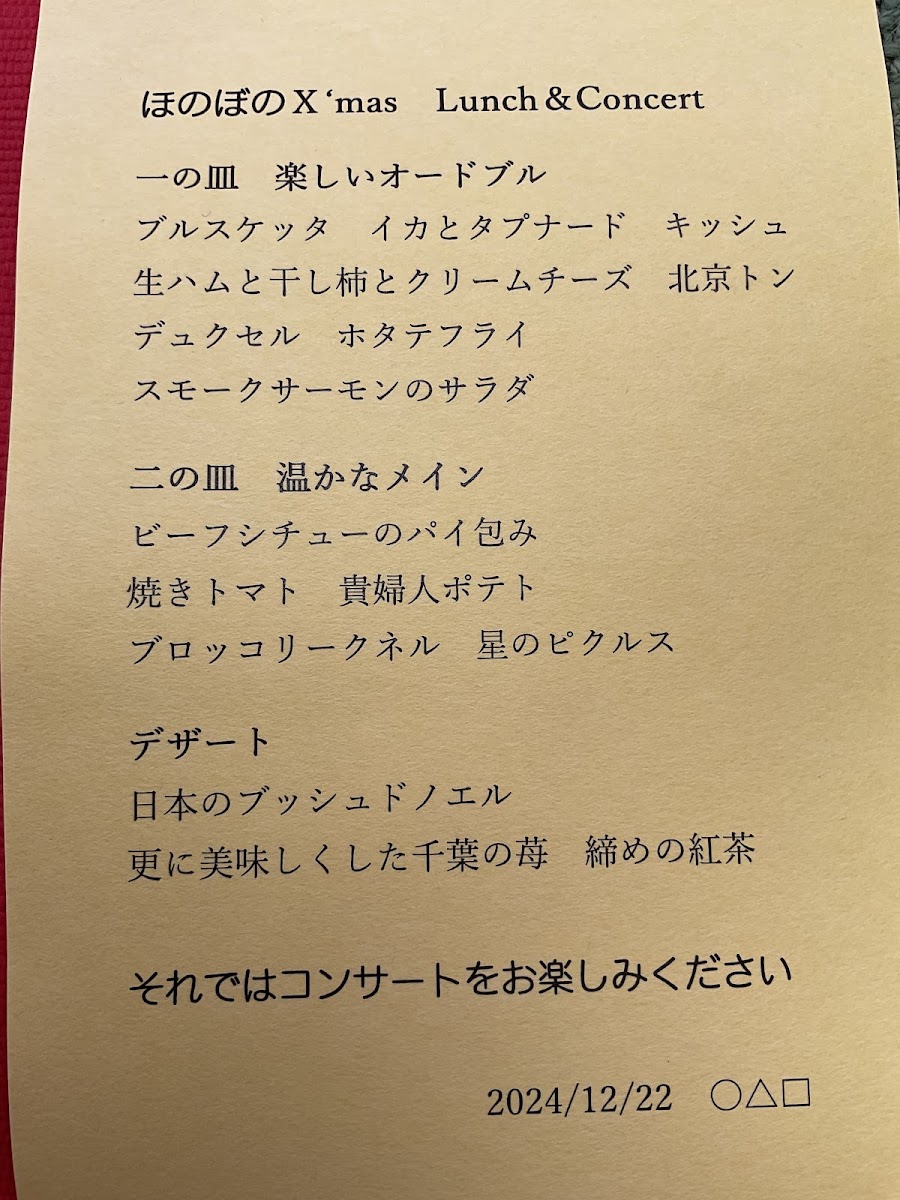 ほのぼのX‘mas　Lunch＆Concert
一の皿　楽しいオードブル
ブルスケッタ　イカとタプナード　キッシュ
生ハムと干し柿とクリームチーズ　北京トン
デュクセル　ホタテフライ
スモークサーモンのサラダ
二の皿　温かなメイン
ビーフシチューのパイ包み
焼きトマト　貴婦人ポテト
ブロッコリークネル　星のピクルス
デザート
日本のブッシュドノエル
更に美味しくした千葉の苺　締めの紅茶
それではコンサートをお楽しみください
2024/12/22　○△□